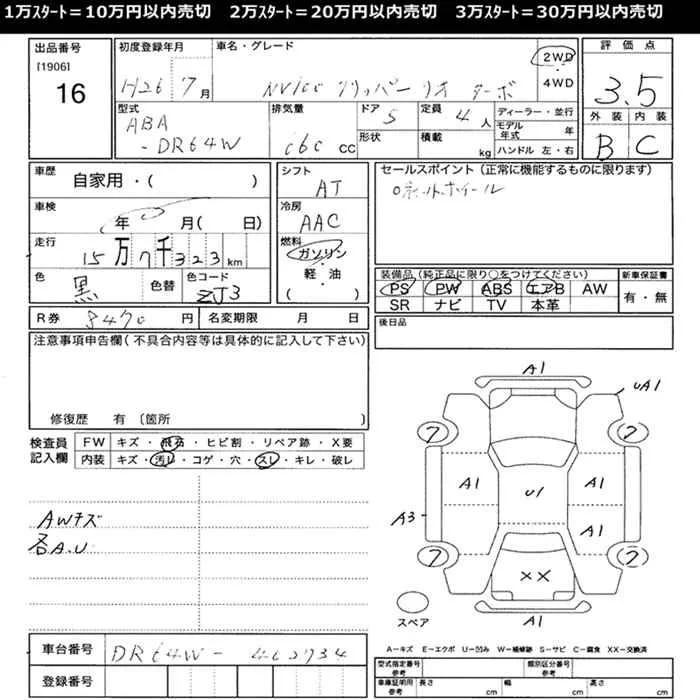 1万ｽﾀｰﾄ＝10万円以内売切　2万ｽﾀｰﾄ＝20万円以内売切　3万ｽﾀｰﾄ＝30万円以内売切
出品番号
[1906]
16
初度登録年月
H26 7月
車名・グレード
NV100 クリッパーリオ ターボ
2WD
・
4WD
評価点
3.5
外装 内装
B C
型式
ABA
-DR64W
排気量
660 cc
ドア
5
形状
定員
4人
積載
kg
ディーラー・並行
モデル年式 年
ハンドル 左・右
車歴
自家用・( )
車検
年 月( 日)
走行
15万7千323km
色
黒
色替
色コード
ZJ3
シフト
AT
冷房
AAC
燃料
ガソリン
・
軽・油
( )
セールスポイント（正常に機能するものに限ります）
装備品（純正品に限り○をつけてください）
PS PW ABS エアB AW
SR ナビ TV 本革
新車保証書
有・無
後日品
R券 8470円
名変期限 月 日
注意事項申告欄(不具合内容等は具体的に記入して下さい)
修復歴 有 〔箇所 〕
検査員
記入欄
FW キズ・飛石・ヒビ割・リペア跡・X要
内装 キズ・汚レ・コゲ・穴・スレ・キレ・破レ
AWキズ
各A.U
A1
UA1
7 7
A1 U1 A1
A3
A1
7 7
XX
A1
スペア
A－キズ E－エクボ U－凹み W－補修跡 S－サビ C－腐食 XX－交換済
車台番号
DR64W-
登録番号
型式指定番号
参考
類別区分番号
参考
車庫証明用
参考
長さ cm
幅 cm
高さ cm